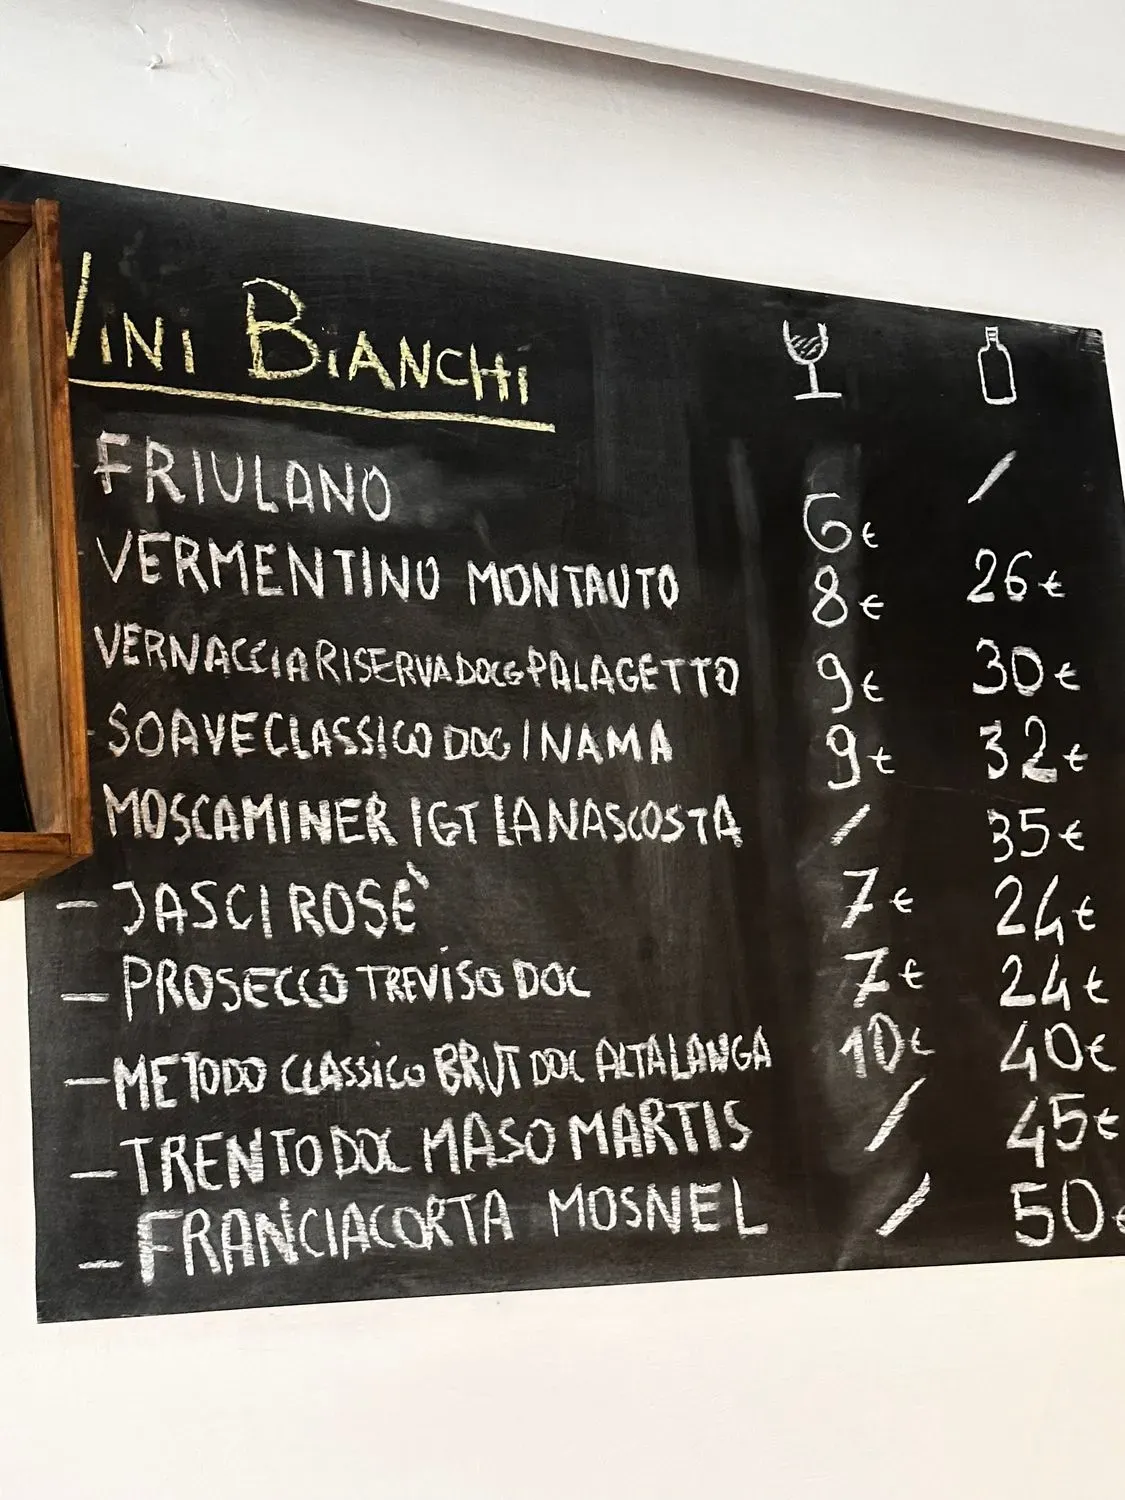 VINI BIANCHI
FRIULANO 6€ /
VERMENTINO MONTAUTO 8€ 26€
VERNACCIA RISERVA DOCG PALAGETTO 9€ 30€
SOAVE CLASSICO DOC INAMA 9€ 32€
MOSCAMINER IGT LA NASCOSTA / 35€
- JASCI ROSÈ 7€ 24€
- PROSECCO TREVISO DOC 7€ 24€
- METODO CLASSICO BRUT DOC ALTA LANGA 10€ 40€
- TRENTO DOC MASO MARTIS / 45€
- FRANCIACORTA MOSNEL / 50€